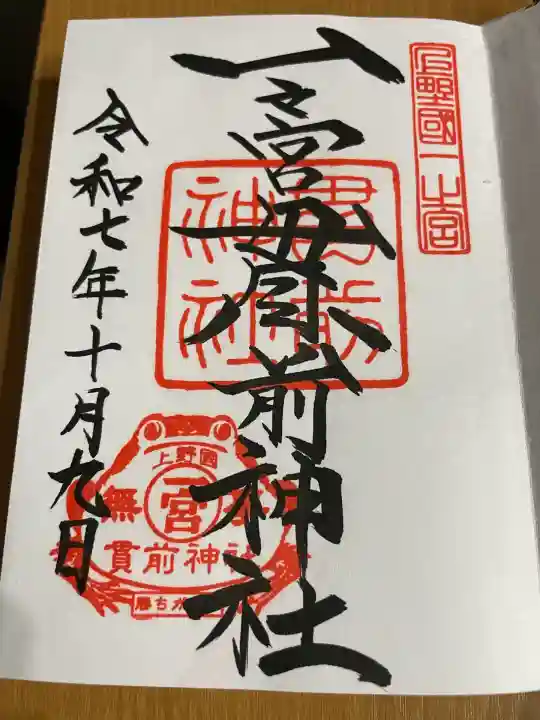 上野國一之宮
一之宮貫前神社
貫前神社
令和七年十月九日
上野國
一宮
無
貫前神社
勝ちか